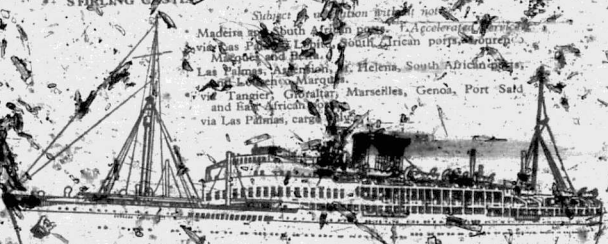 STIRLING CASTLE
Subject to alteration without notice
Madeira and South African ports. Accelerated
via Las Palmas, South African ports, Lourenço
Marques and Beira.
Las Palmas, Ascension, St. Helena, South African ports,
Lourenço Marques
via Tangier, Gibraltar, Marseilles, Genoa, Port Said
and East African ports
via Las Palmas, cargo only